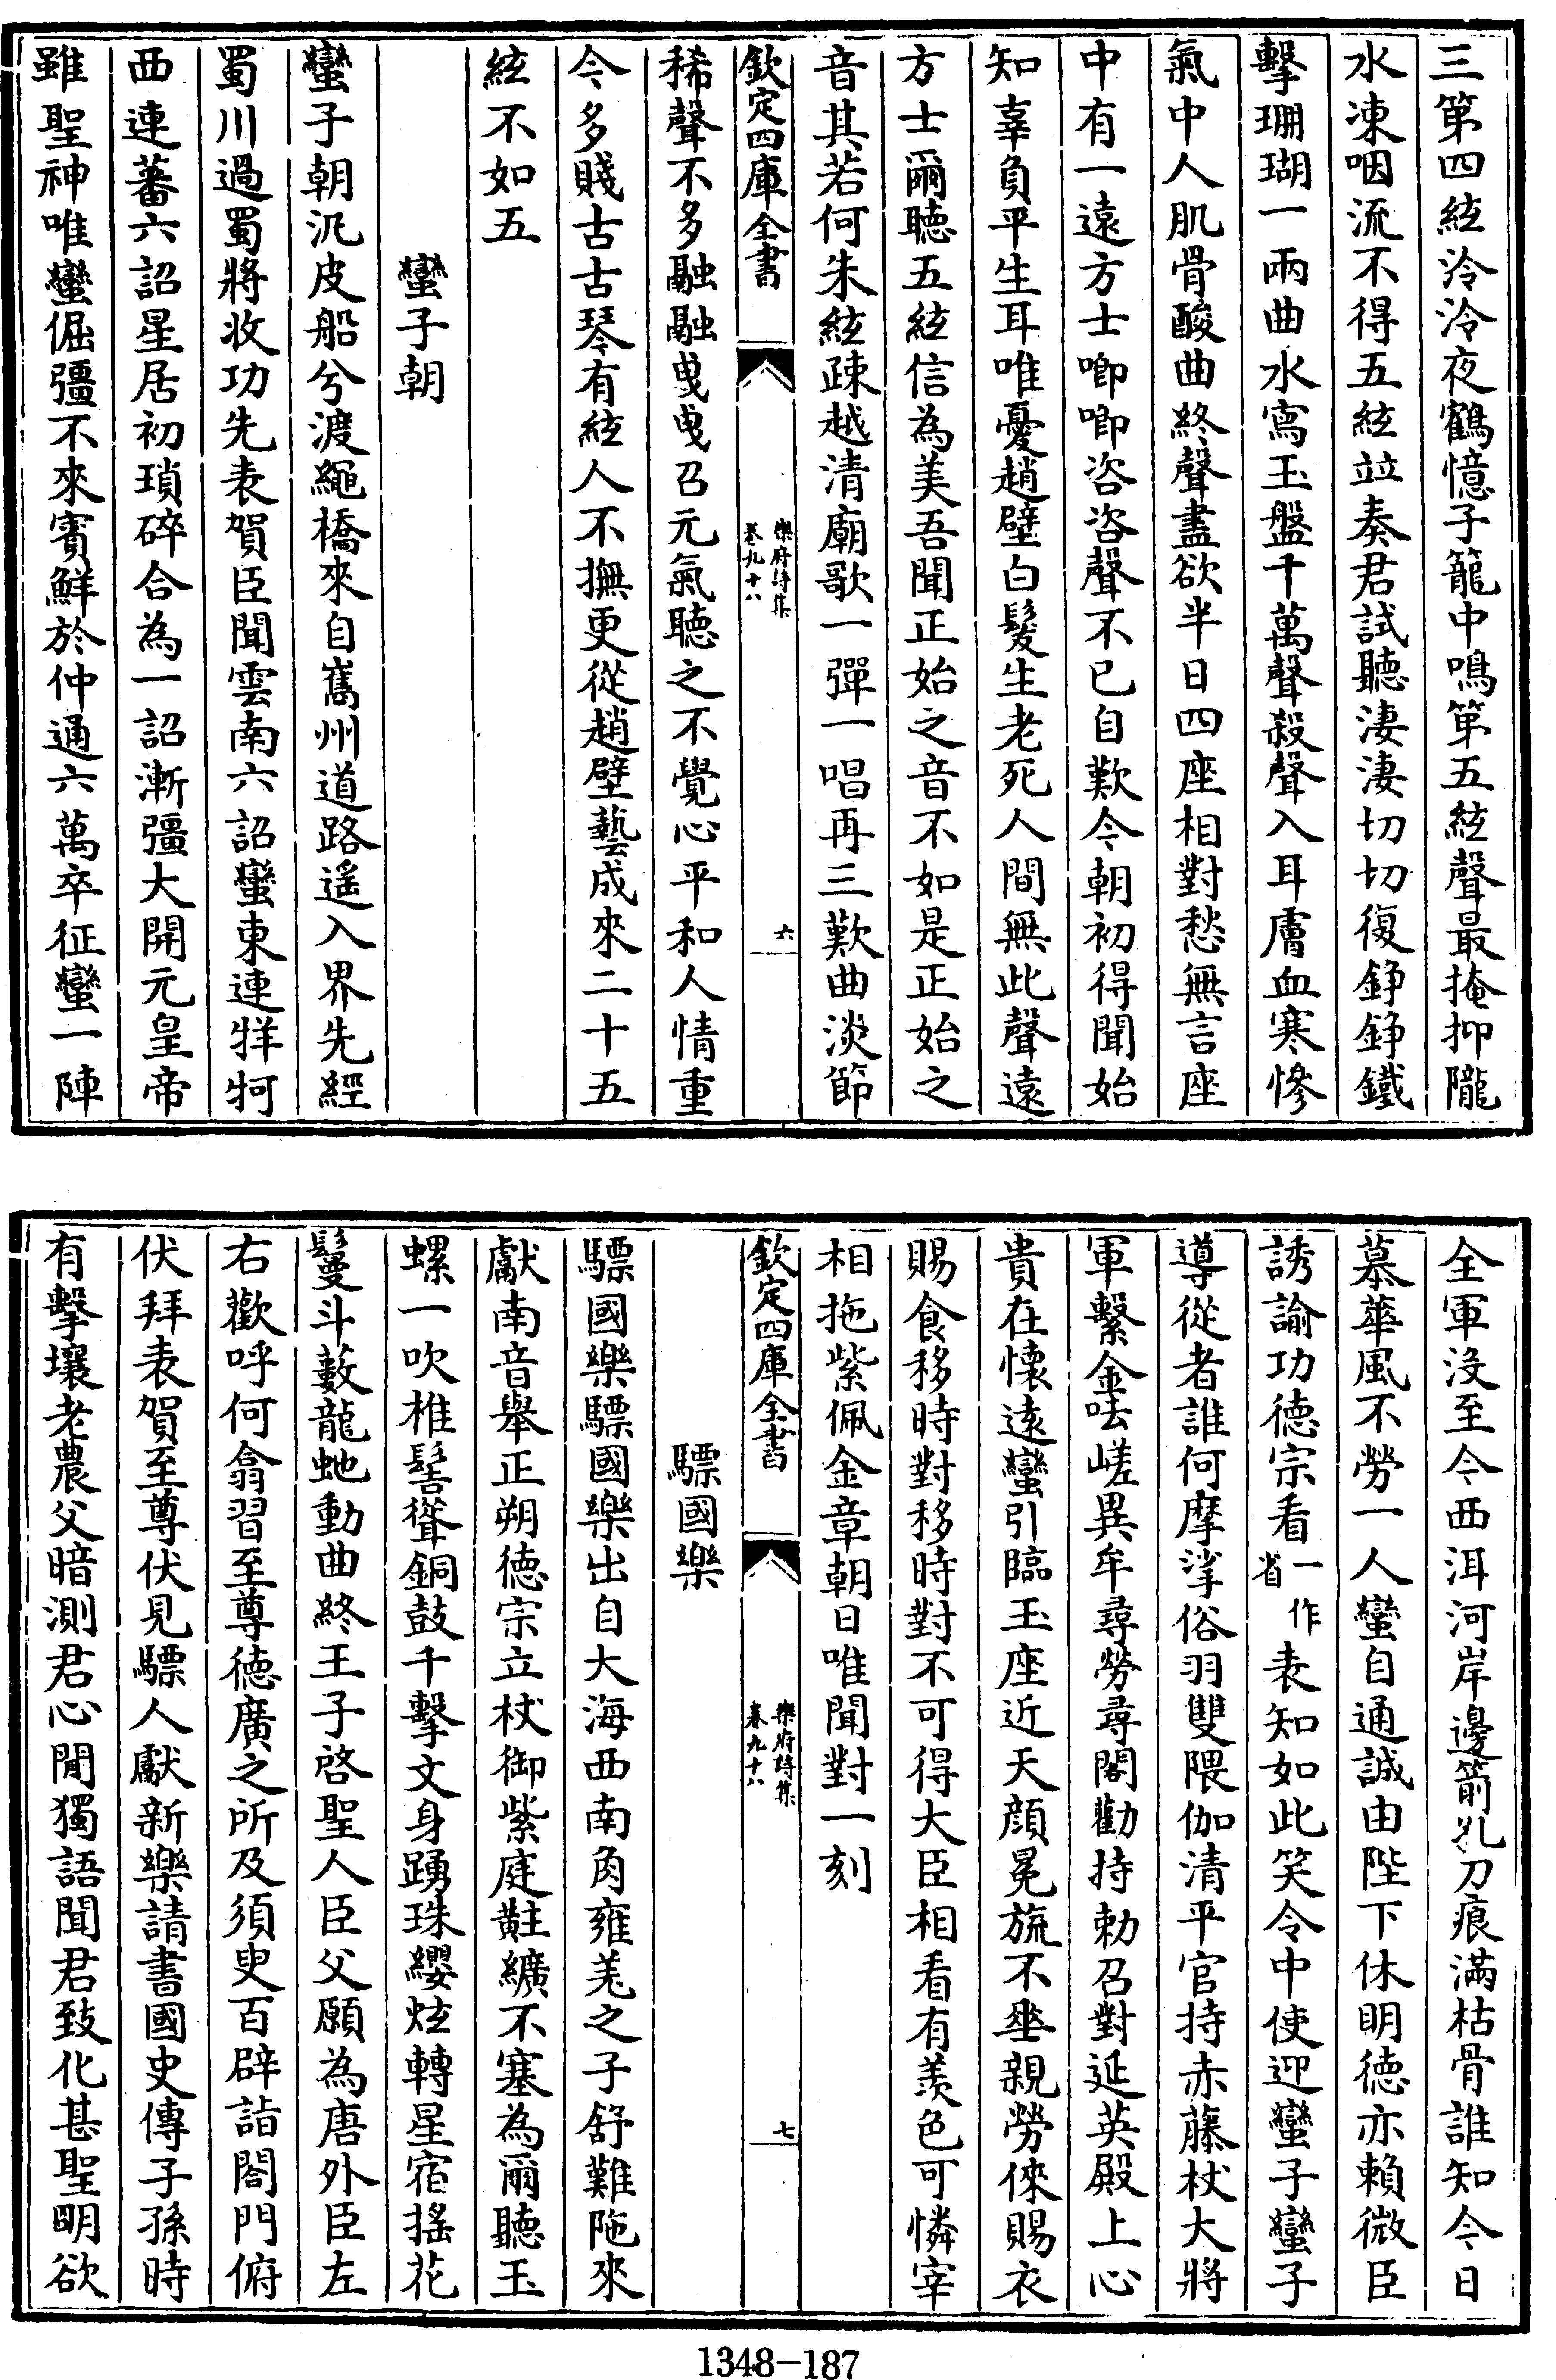 三第四絃泠泠夜鶴憶子籠中鳴第五絃聲最掩抑隴
水凍咽流不得五絃竝奏君試聽淒淒切切復錚錚鐵
擊珊瑚一兩曲水寫玉盤千萬聲殺聲入耳膚血寒慘
氣中人肌骨酸曲終聲盡欲半日四座相對愁無言座
中有一遠方士唧唧咨咨聲不已自歎今朝初得聞始
知辜負平生耳唯憂趙壁白髮生老死人間無此聲遠
方士爾聽五絃信為美吾聞正始之音不如是正始之
音其若何朱絃疎越清廟歌一彈一唱再三歎曲淡節
欽定四庫全書
樂府詩集
卷九十八
六
稀聲不多融融曵曵召元氣聽之不覺心平和人情重
今多賤古古琴有絃人不撫更從趙壁藝成來二十五
絃不如五
蠻子朝
蠻子朝汎皮船兮渡繩橋來自巂州道路遥入界先經
蜀川過蜀將收功先表賀臣聞雲南六詔蠻東連牂牁
西連蕃六詔星居初瑣碎合為一詔漸彊大開元皇帝
雖聖神唯蠻倔彊不來賓鮮於仲通六萬卒征蠻一陣
全軍沒至今西洱河岸邊箭孔刀痕滿枯骨誰知今日
慕華風不勞一人蠻自通誠由陛下休明德亦賴微臣
誘諭功德宗看一作省表知如此笑令中使迎蠻子蠻子
導從者誰何摩挲俗羽雙隈伽清平官持赤藤杖大將
軍繫金呿嵯異牟尋勞尋閣勸持勅召對延英殿上心
貴在懷逺蠻引臨玉座近天顔冕旒不垂親勞倈賜衣
賜食移時對移時對不可得大臣相看有羨色可憐宰
相拖紫佩金章朝日唯聞對一刻
欽定四庫全書
樂府詩集
卷九十八
七
驃國樂
驃國樂驃國樂出自大海西南角雍羌之子舒難陁來
獻南音舉正朔德宗立杖御紫庭黈纊不塞為爾聽玉
螺一吹椎髻聳銅鼓千擊文身踴珠纓炫轉星宿摇花
鬘斗藪龍虵動曲終王子啓聖人臣父願為唐外臣左
右歡呼何翕習至尊德廣之所及須臾百辟詣閤門俯
伏拜表賀至尊伏見驃人獻新樂請書國史傳子孫時
有擊壤老農父暗測君心閒獨語聞君致化甚聖明欲
1348-187